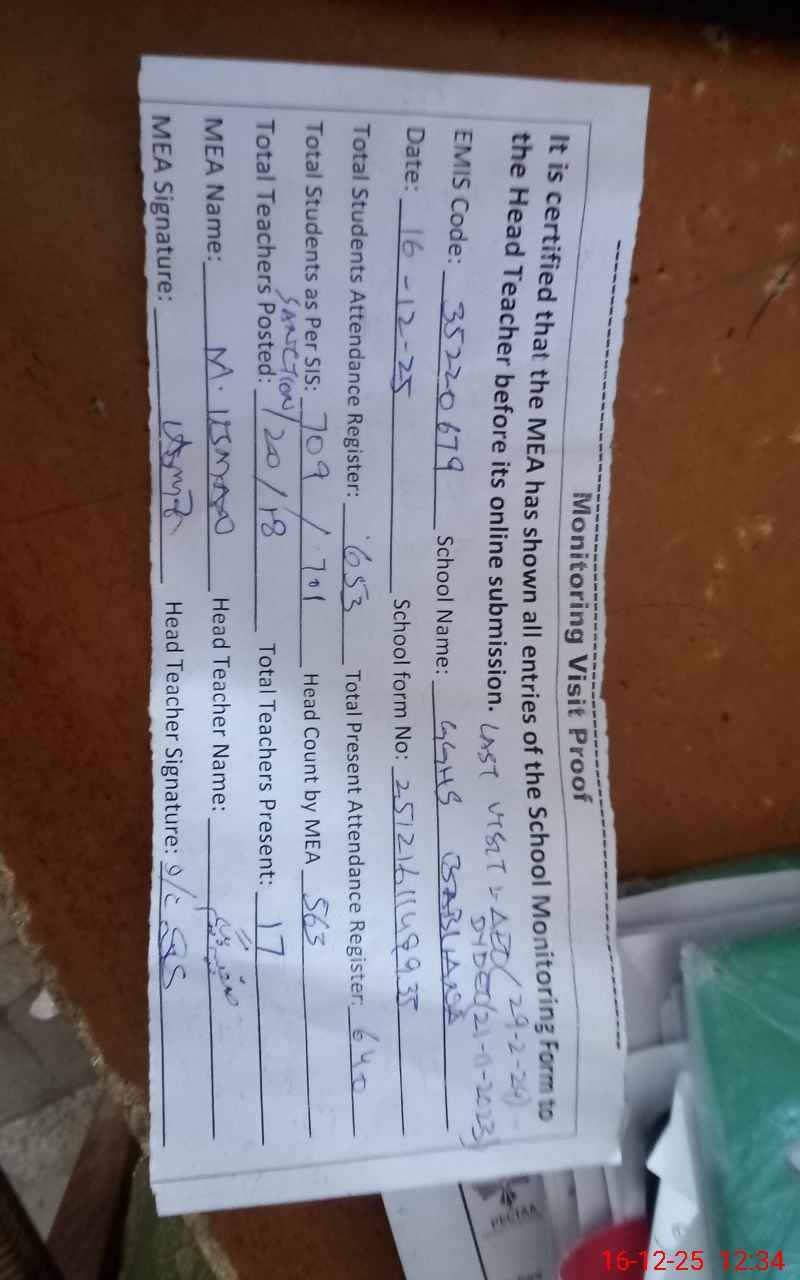 Monitoring Visit Proof
It is certified that the MEA has shown all entries of the School Monitoring Form to
the Head Teacher before its online submission. LAST VISIT :- AEO (29-2-24)
DYDEO (21-11-2023)
EMIS Code: 35220679 School Name: GGHS
Date: 16-12-25 School form No:
Total Students Attendance Register: 653 Total Present Attendance Register: 640
Total Students as Per SIS: 709 / 701 Head Count by MEA 563
SANCTION
Total Teachers Posted: 20 / 18 Total Teachers Present: 17
MEA Name: M. Head Teacher Name:
MEA Signature: Head Teacher Signature:
PECTAA
16-12-25 12:34